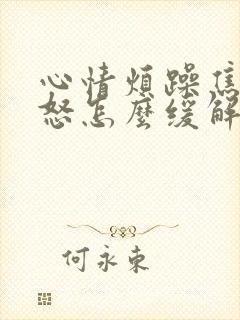 心情煩躁焦
怒怎麼緩解
何永東